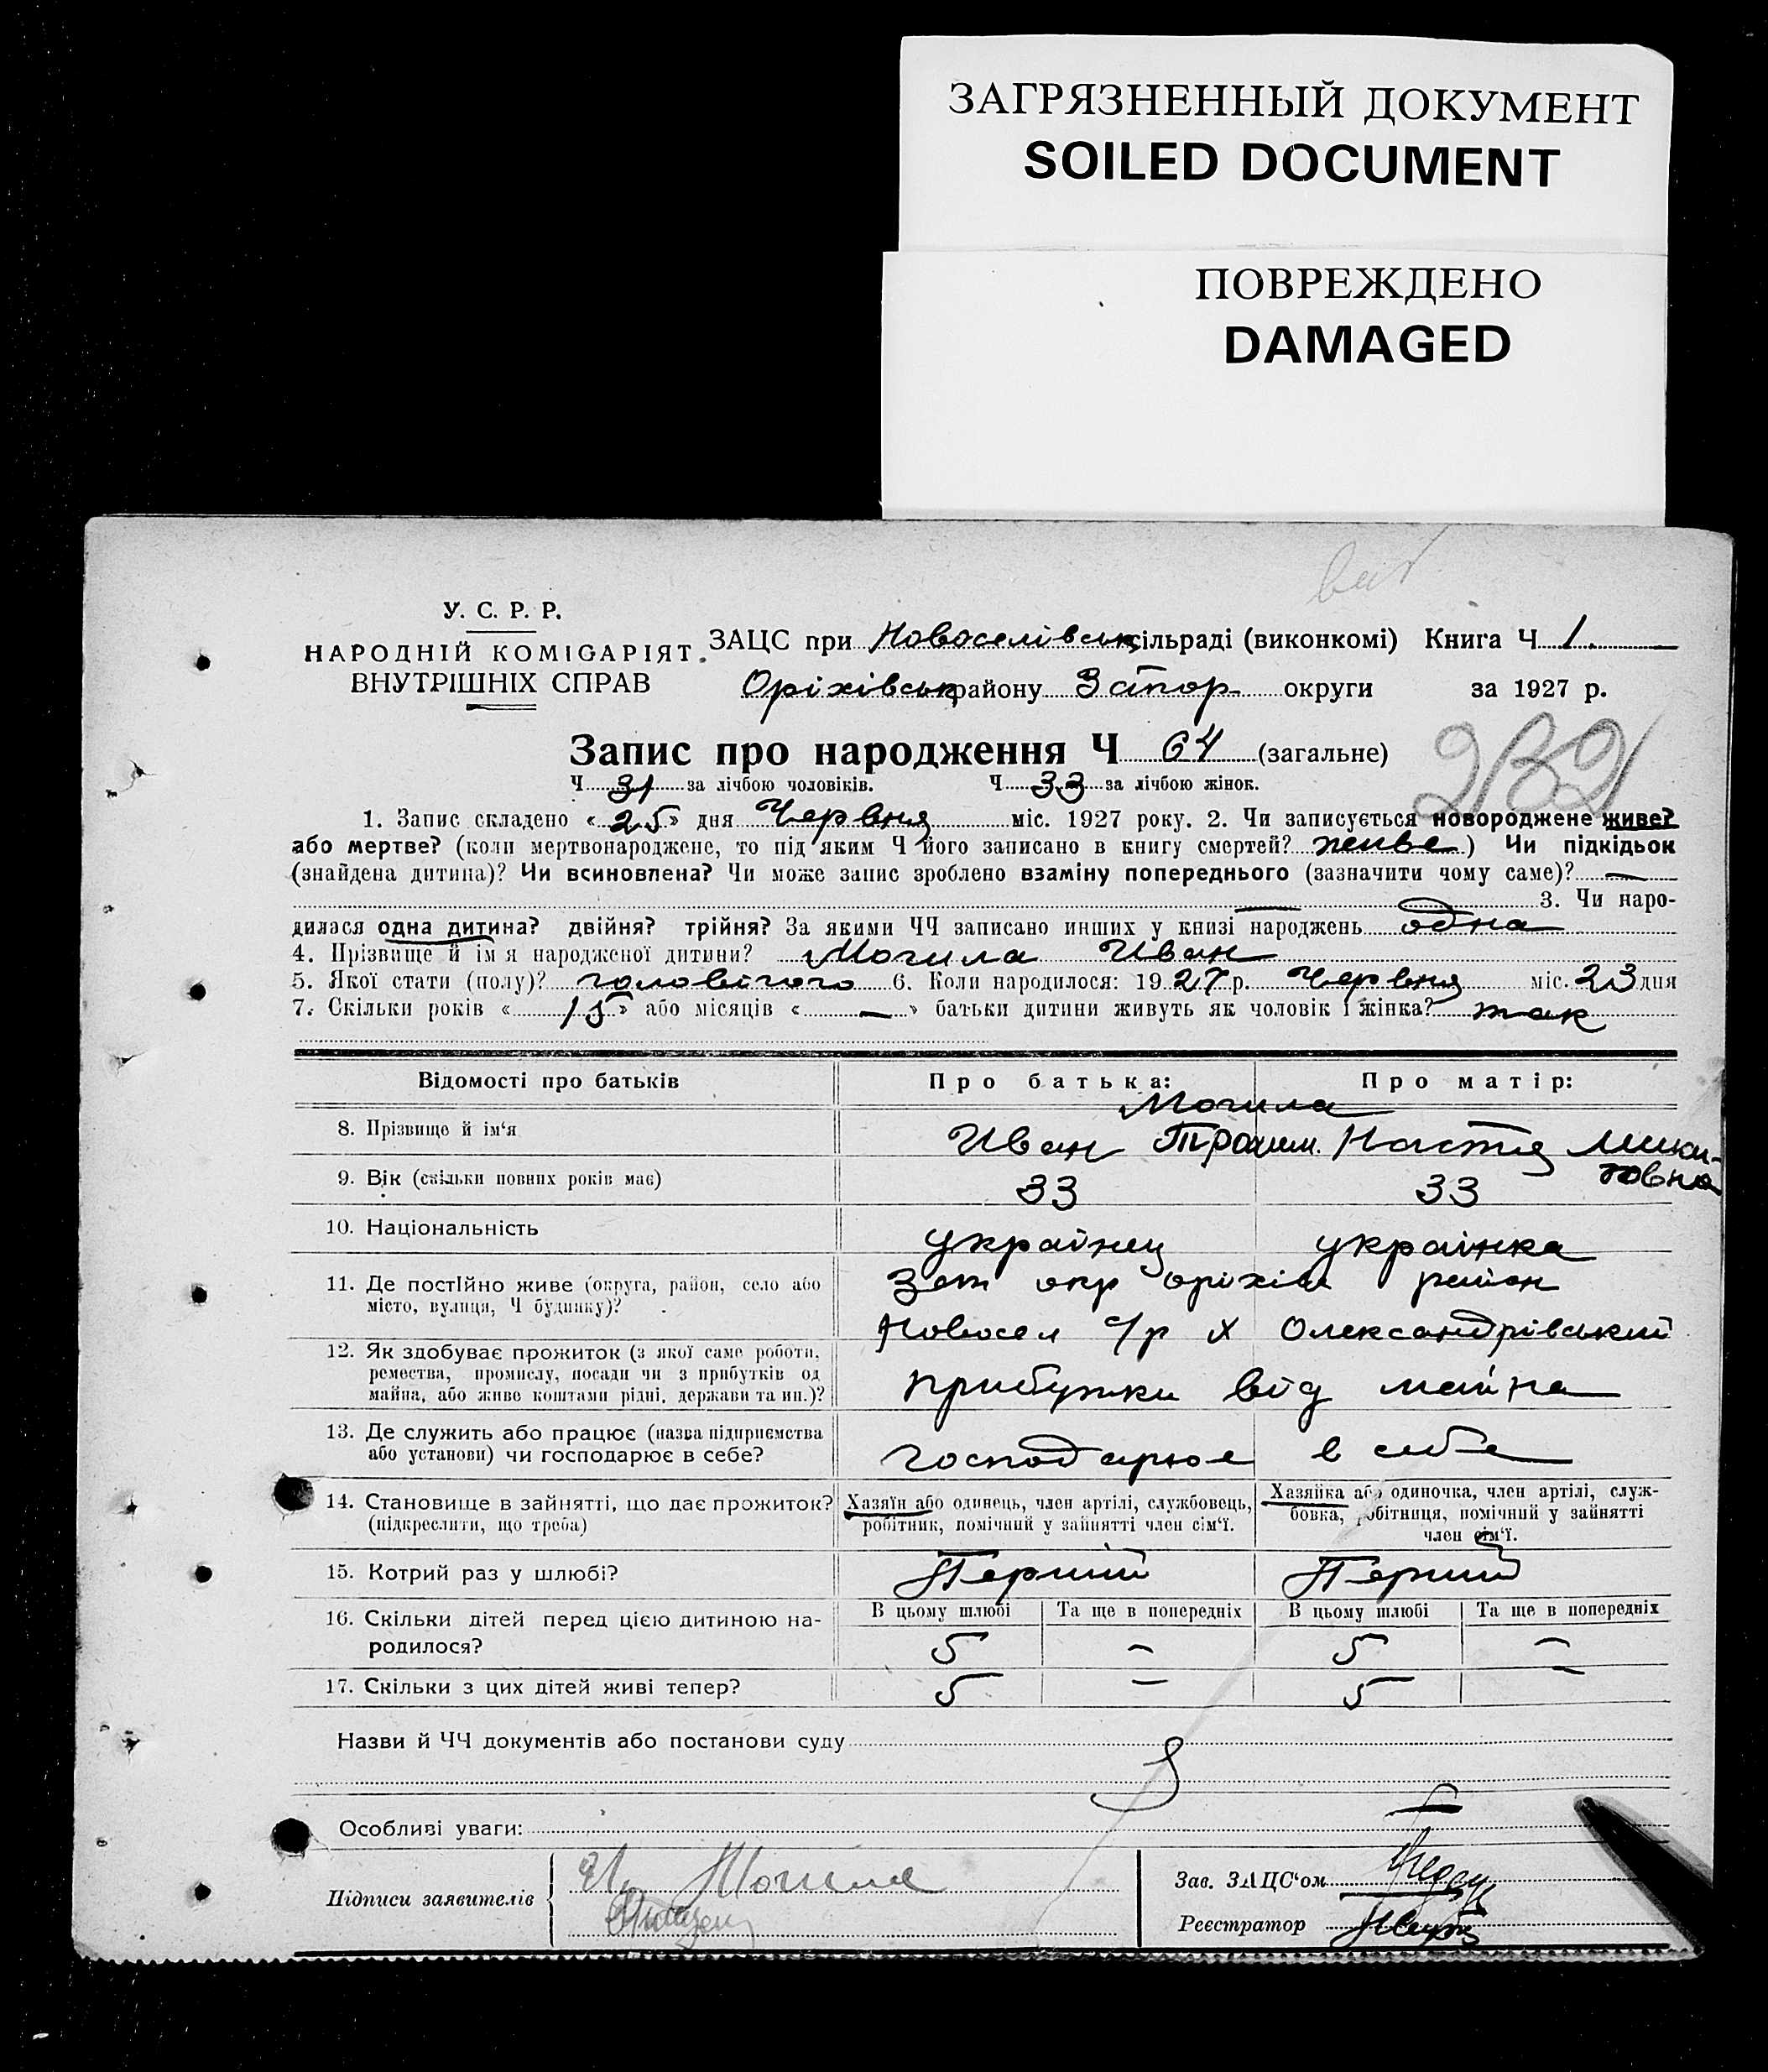 ЗАГРЯЗНЕННЫЙ ДОКУМЕНТ
SOILED DOCUMENT
ПОВРЕЖДЕНО
DAMAGED
У. С. Р. Р.
НАРОДНІЙ КОМІСАРІЯТ
ВНУТРІШНІХ СПРАВ
ЗАЦС при Новоселівськ сільраді (виконкомі) Книга Ч 1.
Оріхівськ району Запор округи за 1927 р.
Запис про народження Ч 64 (загальне)
232
Ч 31 за лічбою чоловіків. Ч 33 за лічбою жінок.
1. Запис складено «25» дня Червня міс. 1927 року. 2. Чи записується новороджене живе?
або мертве? (коли мертвонароджене, то під яким Ч його записано в книгу смертей? живе) Чи підкідьок
(знайдена дитина)? Чи всиновлена? Чи може запис зроблено взаміну попереднього (зазначити чому саме)? —
3. Чи наро-
дилася одна дитина? двійня? трійня? За якими ЧЧ записано инших у книзі народжень одна
4. Прізвище й ім я народженої дитини? Могила Иван
5. Якої стати (полу)? чоловічого 6. Коли народилося: 1927 р. Червня міс. 23 дня
7. Скільки років «15» або місяців «—» батьки дитини живуть як чоловік і жінка? так
Відомості про батьків Про батька: Про матір:
Могила
8. Прізвище й ім'я Иван Трохим. Настя Мики-
товна
9. Вік (скільки повних років має) 33 33
10. Національність українец українка
11. Де постійно живе (округа, район, село або Зап окр оріхів район
місто, вулиця, Ч будинку)? Новосел с/р х Олександрівський
12. Як здобуває прожиток (з якої саме роботи,
ремества, промислу, посади чи з прибутків од прибутки від майна
майна, або живе коштами рідні, держави та ин.)?
13. Де служить або працює (назва підприємства
або установи) чи господарює в себе? господарює в себе
14. Становище в зайнятті, що дає прожиток? Хазяїн або одинець, член артілі, службовець, Хазяйка або одиночка, член артілі, служ-
(підкреслити, що треба) робітник, помічний у зайнятті член сім'ї. бовка, робітниця, помічний у зайнятті
член сім'ї.
15. Котрий раз у шлюбі? Перший Перший
16. Скільки дітей перед цією дитиною на- В цьому шлюбі Та ще в попередніх В цьому шлюбі Та ще в попередніх
родилося? 5 — 5 —
17. Скільки з цих дітей живі тепер? 5 — 5 —
Назви й ЧЧ документів або постанови суду
Особливі уваги:
Підписи заявителів Могила
Зав. ЗАЦС'ом
Реєстратор